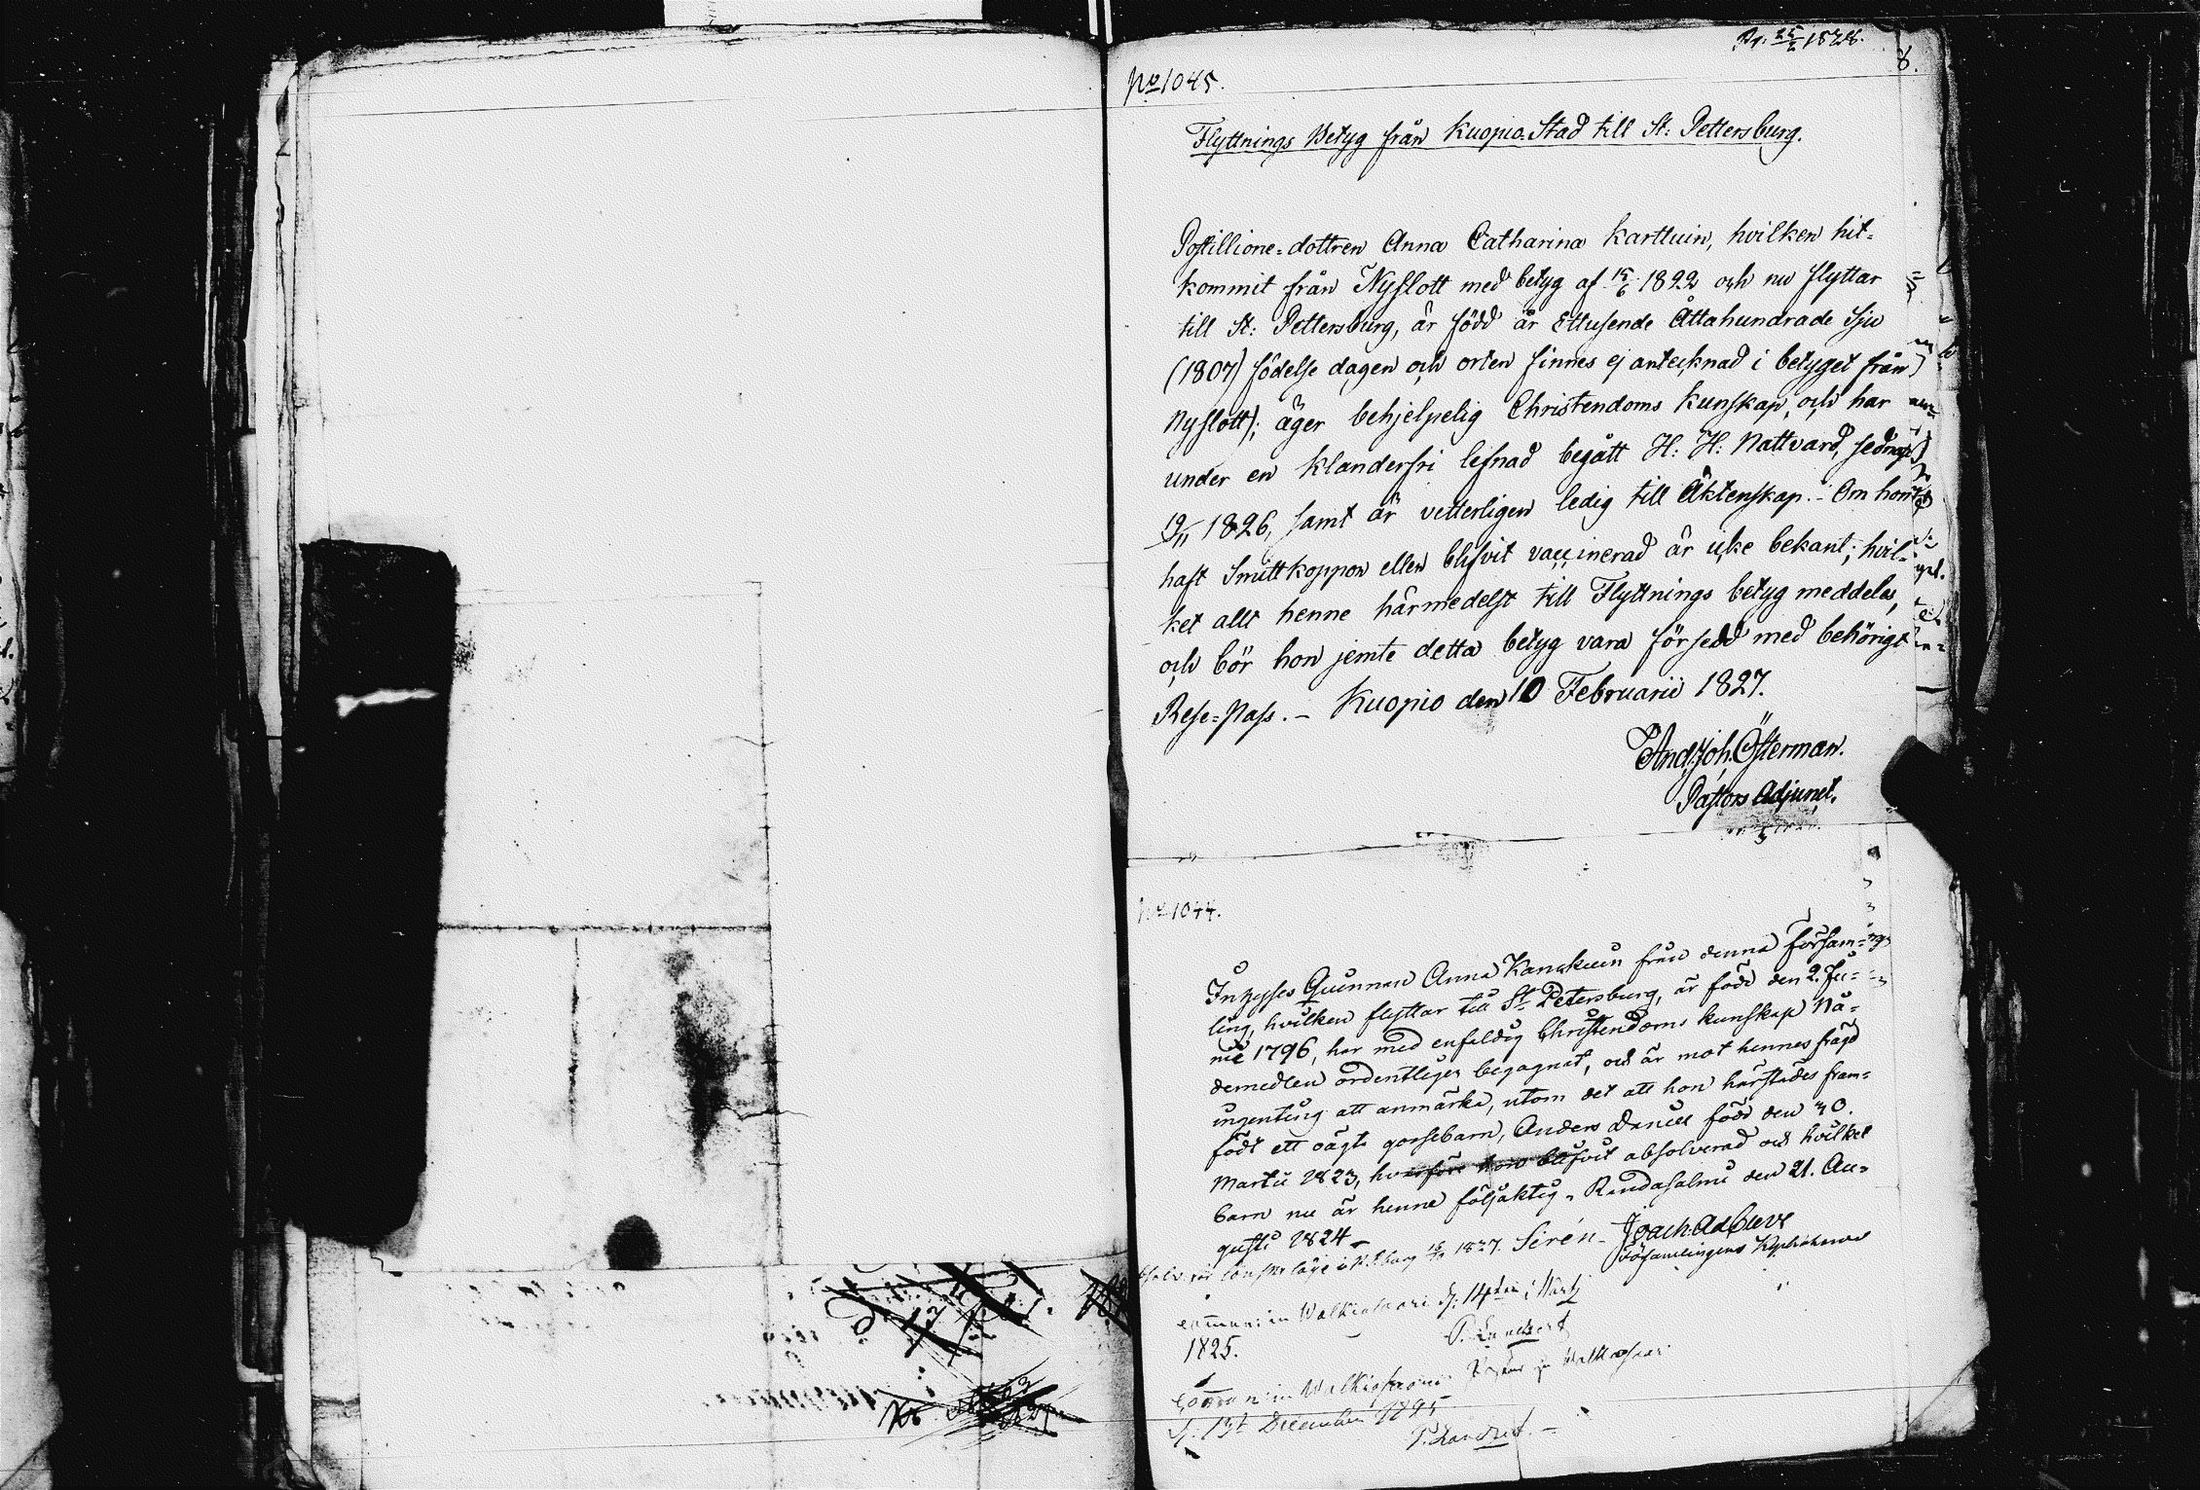 Pr. 25/2 1828.
8.
No 1045.
Flyttnings Betyg från Kuopio Stad till St: Pettersburg.
Postillions-dottren Anna Catharina Karttuin, hvilken hit-
kommit från Nyslott med betyg af 15/6 1822 och nu flyttar
till St: Pettersburg, är född år Ettusende Åttahundrade Sju
(1807) födelse dagen och orten finnes ej antecknad i betyget från
Nyslott); äger behjelpelig Christendoms kunskap, och har
under en klanderfri lefnad begått H: H: Nattvard, sednast
19/11 1826, samt är vetterligen ledig till Äktenskap. - Om hon
haft Smittkoppor eller blifvit vaccinerad är icke bekant; hvil-
ket allt henne härmedelst till Flyttnings betyg meddelas,
och bör hon jemte detta betyg vara försedd med behörigt
Rese-Pass. - Kuopio den 10 Februarii 1827.
And: Joh. Österman.
Pastors Adjunct.
No 1044.
Inhyses Quinnan Anna Kanskuin från denna försam-
ling, hvilken flyttar till St Petersburg, är född den 2. Ju-
nii 1796, har med enfaldig Christendoms kunskap Nå-
demedlen ordentligen begagnat, och är mot hennes frägd
ingenting att anmärka, utom det att hon härstädes fram-
födt ett oägta gossebarn, Anders Daniel född den 30.
Martii 1823, hvarföre hon blifvit absolverad och hvilket
barn nu är henne följaktig. Randasalmi den 21. Au-
gusti 1824
1827. Sirén
Joach. Ad.
Församlingens
commun: in Walkiasaari d: 14 Martj
1825.
commun: in
d: 13t December 1825